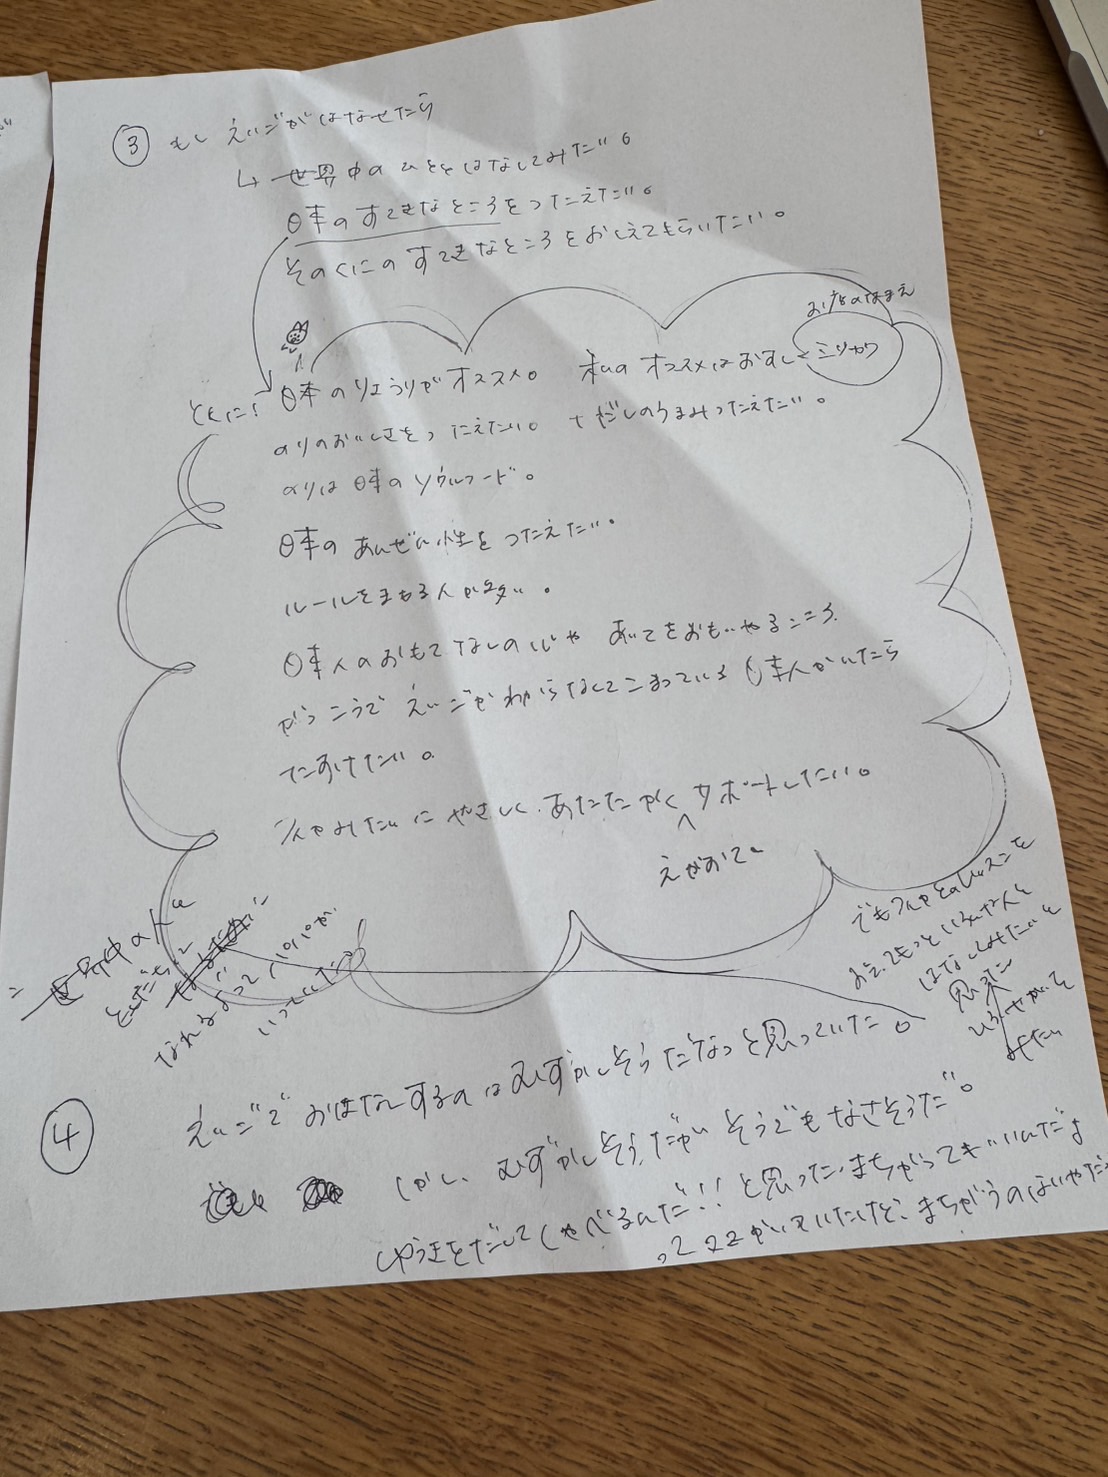 ③ もしえいごがはなせたら
↳ 世界中のひととはなしてみたい。
日本のすてきなところをつたえたい。
そのくにのすてきなところをおしえてもらいたい。
お店のなまえ
とくに! 日本のりょうりがオススメ。 私のオススメはおすしと ミリカワ
のりのおいしさをつたえたい。 +だしのうまみつたえたい。
のりは日本のソウルフード。
日本のあんぜん性をつたえたい。
ルールをまもる人が多い。
日本人のおもてなしの心や あいてをおもいやるこころ
がっこうで えいごがわからなくてこまっている日本人がいたら
たすけたい。
みたいにやさしく、あたたかくサポートしたい。
えがおで
世界中の人と
ともだちに
なれるよってパパが
いっていた
でも
おえてもっといろんな人と
はなしてみたいと
思った
④ えいごでおはなしするのはむずかしそうだなっと思っていた。
しかし、むずかしそうだが、そうでもなさそうだ。
ゆうきをだしてしゃべるんだ!!と思った、まちがってもいいんだよ
ってママがいっていたけど、まちがうのはいやだ